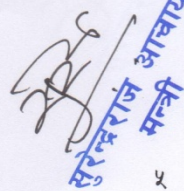 सुरेन्द्रराज आचार्य
मन्त्री
५